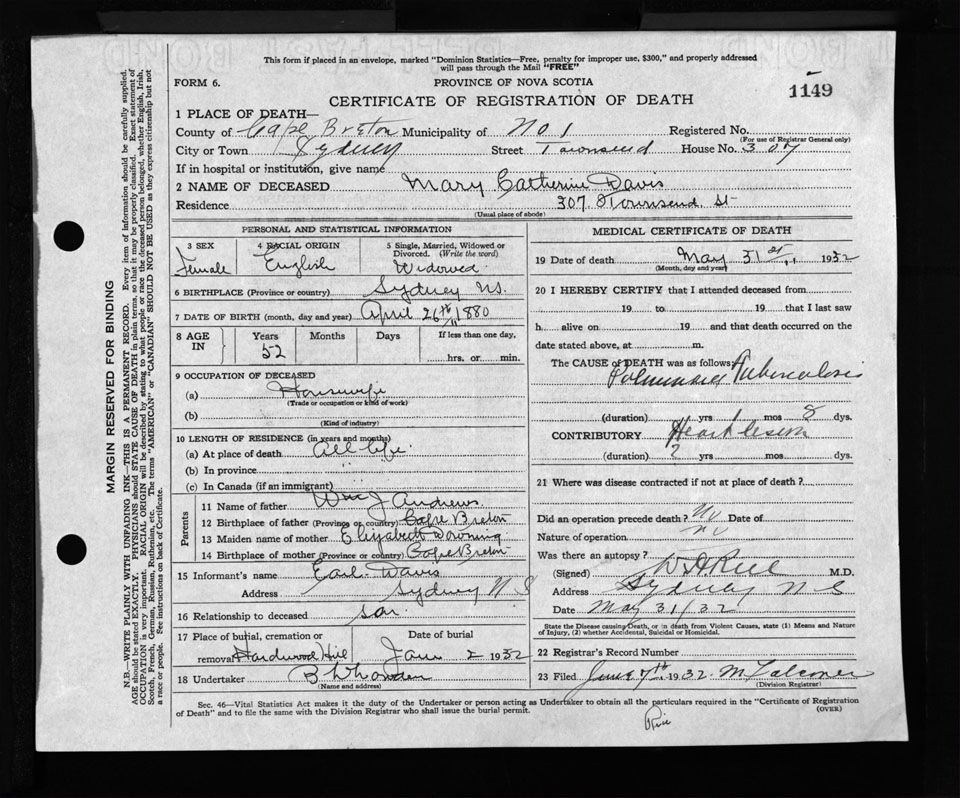 This form if placed in an envelope, marked "Dominion Statistics—Free, penalty for improper use, $300," and properly addressed
will pass through the Mail "FREE"
FORM 6.
PROVINCE OF NOVA SCOTIA
1149
CERTIFICATE OF REGISTRATION OF DEATH
1 PLACE OF DEATH—
County of Cape Breton Municipality of No 1 Registered No.
(For use of Registrar General only)
City or Town Sydney Street Townsend House No. 307
If in hospital or institution, give name
2 NAME OF DECEASED Mary Catherine Davis
Residence 307 Townsend St
(Usual place of abode)
PERSONAL AND STATISTICAL INFORMATION
3 SEX Female
4 RACIAL ORIGIN English
5 Single, Married, Widowed or Divorced. (Write the word) Widowed
6 BIRTHPLACE (Province or country) Sydney N.S.
7 DATE OF BIRTH (month, day and year) April 26th 1880
8 AGE IN Years 52 Months Days If less than one day, hrs. or min.
9 OCCUPATION OF DECEASED
(a) Housewife
(Trade or occupation or kind of work)
(b)
(Kind of industry)
10 LENGTH OF RESIDENCE (in years and months)
(a) At place of death all life
(b) In province
(c) In Canada (if an immigrant)
Parents
11 Name of father Wm J Andrews
12 Birthplace of father (Province or country) Cape Breton
13 Maiden name of mother Elizabeth Downing
14 Birthplace of mother (Province or country) Cape Breton
15 Informant's name Earl Davis
Address Sydney N S
16 Relationship to deceased son
17 Place of burial, cremation or removal Hardwood Hill
Date of burial June 2 1932
18 Undertaker
(Name and address)
MEDICAL CERTIFICATE OF DEATH
19 Date of death May 31st 1932
(Month, day and year)
20 I HEREBY CERTIFY that I attended deceased from
19 to 19 , that I last saw
h alive on 19 and that death occurred on the
date stated above, at m.
The CAUSE of DEATH was as follows: Pulmonary Tuberculosis
(duration) yrs 1 mos 8 dys.
CONTRIBUTORY Heart lesion
(duration) 2 yrs mos. dys.
21 Where was disease contracted if not at place of death?
Did an operation precede death? No Date of
Nature of operation no
Was there an autopsy?
(Signed) M.D.
Address Sydney N S
Date May 31/32
State the Disease causing Death, or in death from Violent Causes, state (1) Means and Nature
of Injury, (2) whether Accidental, Suicidal or Homicidal.
22 Registrar's Record Number
23 Filed June 7th 1932 M Falconer
(Division Registrar)
Sec. 46—Vital Statistics Act makes it the duty of the Undertaker or person acting as Undertaker to obtain all the particulars required in the "Certificate of Registration
of Death" and to file the same with the Division Registrar who shall issue the burial permit.
(OVER)
MARGIN RESERVED FOR BINDING
N.B.—WRITE PLAINLY WITH UNFADING INK—THIS IS A PERMANENT RECORD. Every item of information should be carefully supplied.
AGE should be stated EXACTLY. PHYSICIANS should STATE CAUSE OF DEATH in plain terms, so that it may be properly classified. Exact statement of
OCCUPATION is very important. RACIAL ORIGIN will be described by stating to what people or race the deceased person belonged, whether English, Irish,
Scotch, French, German, Russian, Ruthenian, etc. The terms "AMERICAN" or "CANADIAN" SHOULD NOT BE USED as they express citizenship but not
a race or people. See instructions on back of Certificate.